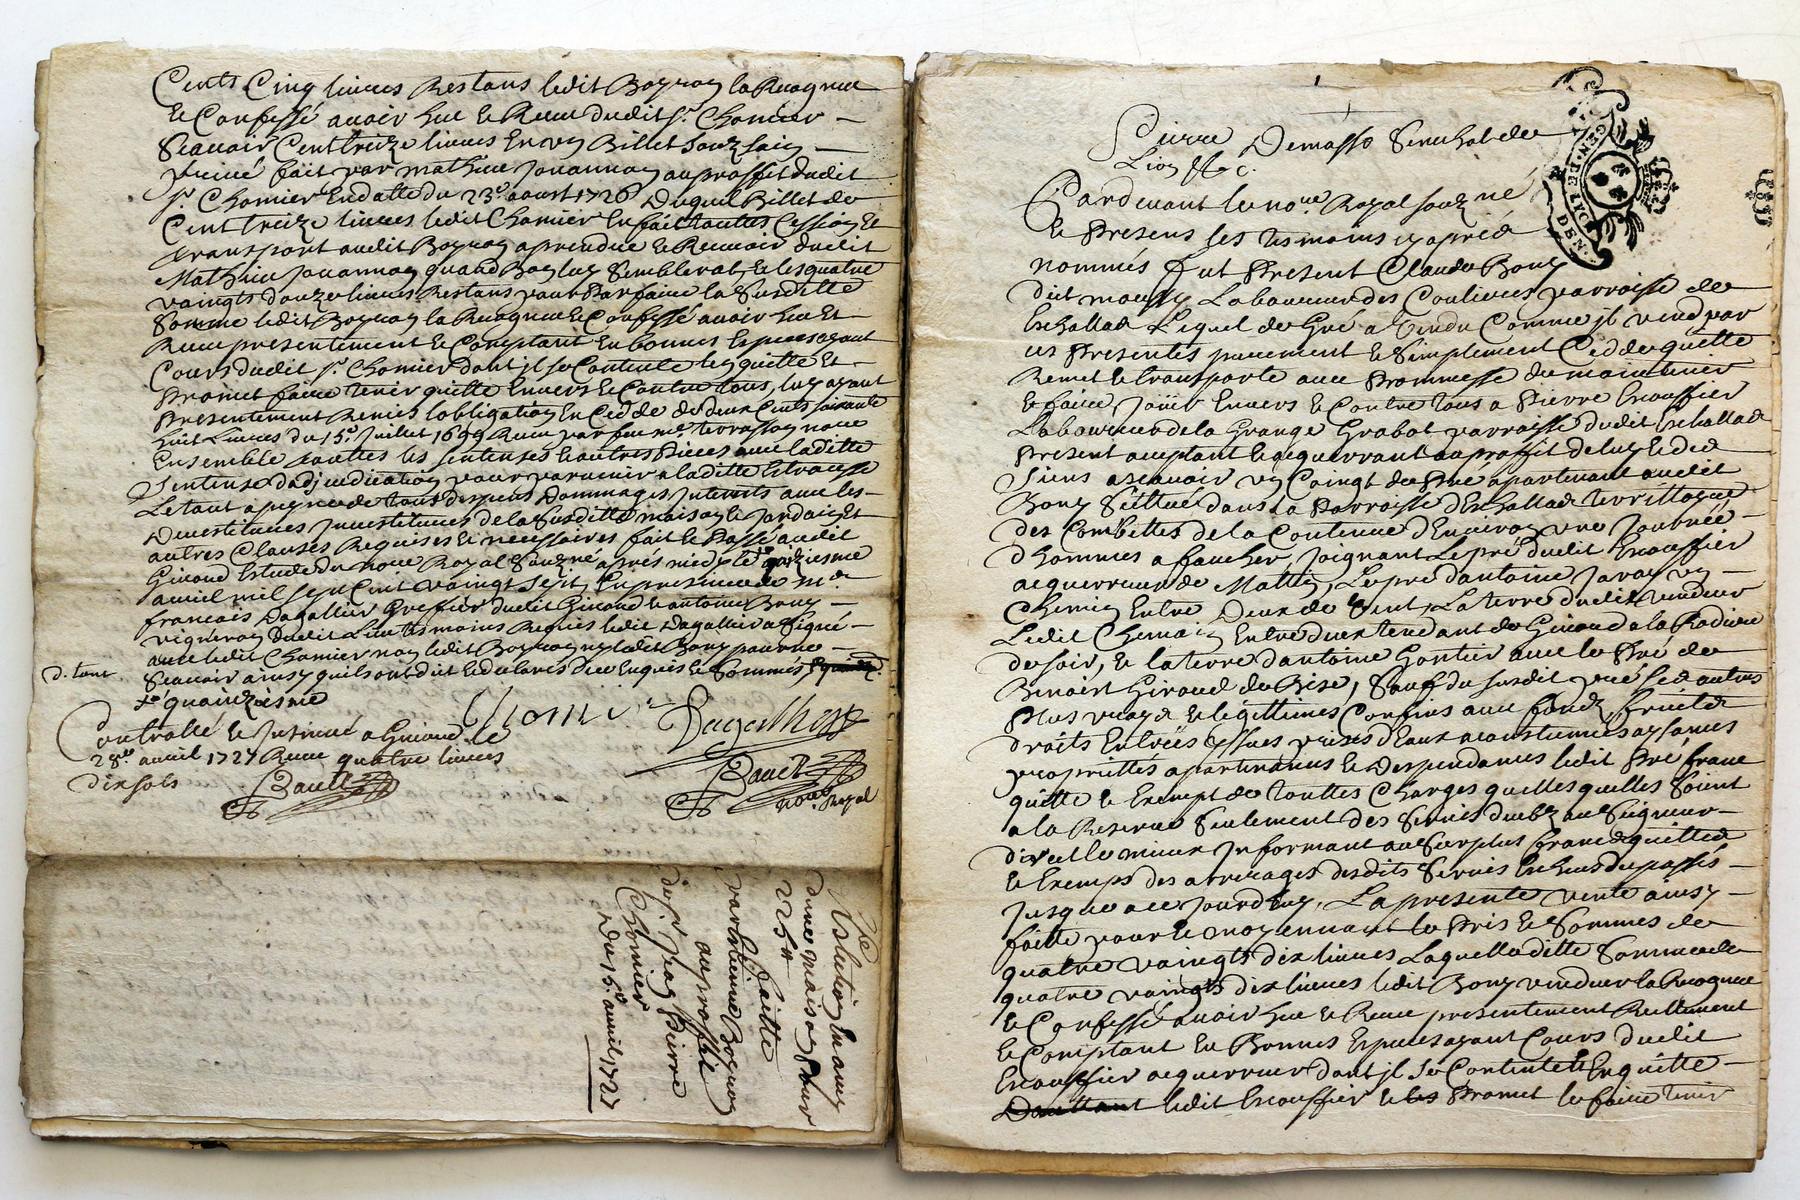 Cents Cinq livres Restans ledit Boyron la Recognue
Et Confessé avoir heu et Receu dudit sr. Chomier
Scavoir Cent treize livres En un Billet souz seing
privé fait par mathieu Jouannon au proffit dudit
sr. Chomier En datte du 23e. aoust 1726 Duquel Billet de
Cent treize livres ledit Chomier En fait touttes Cession et
transport audit a prendre et Recevoir dudit
Mathieu Jouannon quand Bon luy Semblerat, et les quatre
vaingts douze livres Restans pour Parfaire la Susditte
Somme ledit la Recognue et Confessé avoir heu Et
Receu presentement et Comptant En bonnes Especes ayant
Cours dudit sr. Chomier dont il se Contente les quitte Et
Promet faire tenir quitte Envers et Contre tous, luy ayant
Presentement Remis lobligation En Cedde de deux Cents soixante
huit Livres du 15e. Juillet 1699 Receu par feu me. terrasson noue
Ensemble touttes les sentenses et autres Pieces avec laditte
Sentense dadjudication pour parvenir a laditte
Le tout a peyne de tous despens Dommages Interets avec les
Devestitures Investitures de la Susditte maison et Jardain Et
autres Clauses Requises et necessaires fait et Passé audit
Giraud Estude du noue Royal Souzné aprés midy le
avril mil sept Cent vaingt sept En presence de
francois Dagallier Greffier dudit Giraud et antoine Bony
vigneron dudit Lieu tesmoins Requis ledit Dagallier a Signé
avec ledit Chomier non ledit ny ledit Bony pour ne
Scavoir ainsy quils ont dit et declarés De ce Enquis et Sommés
d. tout
quainziesme
Chomier Dagallier
Controllé et Insinué a Giraud le
28e. avril 1727 Receu quatre livres
dix sols
noue. Royal
dune maison pour
225#
faitte
par
au proffit
de sr Jean Pierre
Chomier
Du 15e. avril 1727
Pierre Demasso Senechal de
Lion &c.
GEN. DE LYON
DEN.
Pardevant le noue. Royal souzné
Et Presens les tesmoins cy aprés
nommés fut Present Claude Bony
dit Laboureur des Coulieures parroisse de
Eschallas Lequel de Gré a Vendu Comme il vend par
ces Presentes purement et Simplement Cedde quitte
Remet et transporte avec Prommesse de maintenir
Et faire Joüir Envers et Contre tous a Pierre Escoffier
Laboureur de la Grange Grabot parroisse dudit Eschallas
Present acceptant et acquerrant au proffit de luy et des
Siens ascavoir un Coingt de Pré apartenant audit
Bony Scittué dans la Parroisse dEschallas territtoire
des Combettes de la Contenue dEnviron une Journée
dhommes a faucher, Joignant Le pré dudit Escoffier
acquerreur de Matin, Le pré dantoine un
Chemin Entre Deux de Vent, La terre dudit vendeur
Ledit Chemain Entre deux tendant de Giraud a la
de soir, Et la terre dantoine Gontier avec le Pré de
Benoist Giraud de Bise, Sauf du susdit pré Ses autres
Plus vrays et legittimes Confins avec fondz, fruits
droits Entrées yssues prises dEaux acoustumées aysances
proprietés apartenances et Despendances ledit Pré franc
quitte et Exempt de touttes Charges quelles quelles Soient
a la Reserve Seulement des Servis deubz au Seigneur
direct le mieux Informant au Surplus franc quitte
Et Exemps des arrerages desdits Servis Escheus du passés
Jusque a ce Jourdhuy, La presente vente ainsy
faitte pour et moyennant le Pris et Sommes de
quatre vaingts dix livres Laquelle ditte Somme de
quatre vaingts dix livres ledit Bony vendeur la Recognue
Et Confessé avoir heu et Receu presentement Reellement
Et Comptant En Bonnes Especes ayant Cours dudit
Escoffier acquerreur dont il Se Contente Et En quitte
ledit Escoffier et Promet le faire tenir